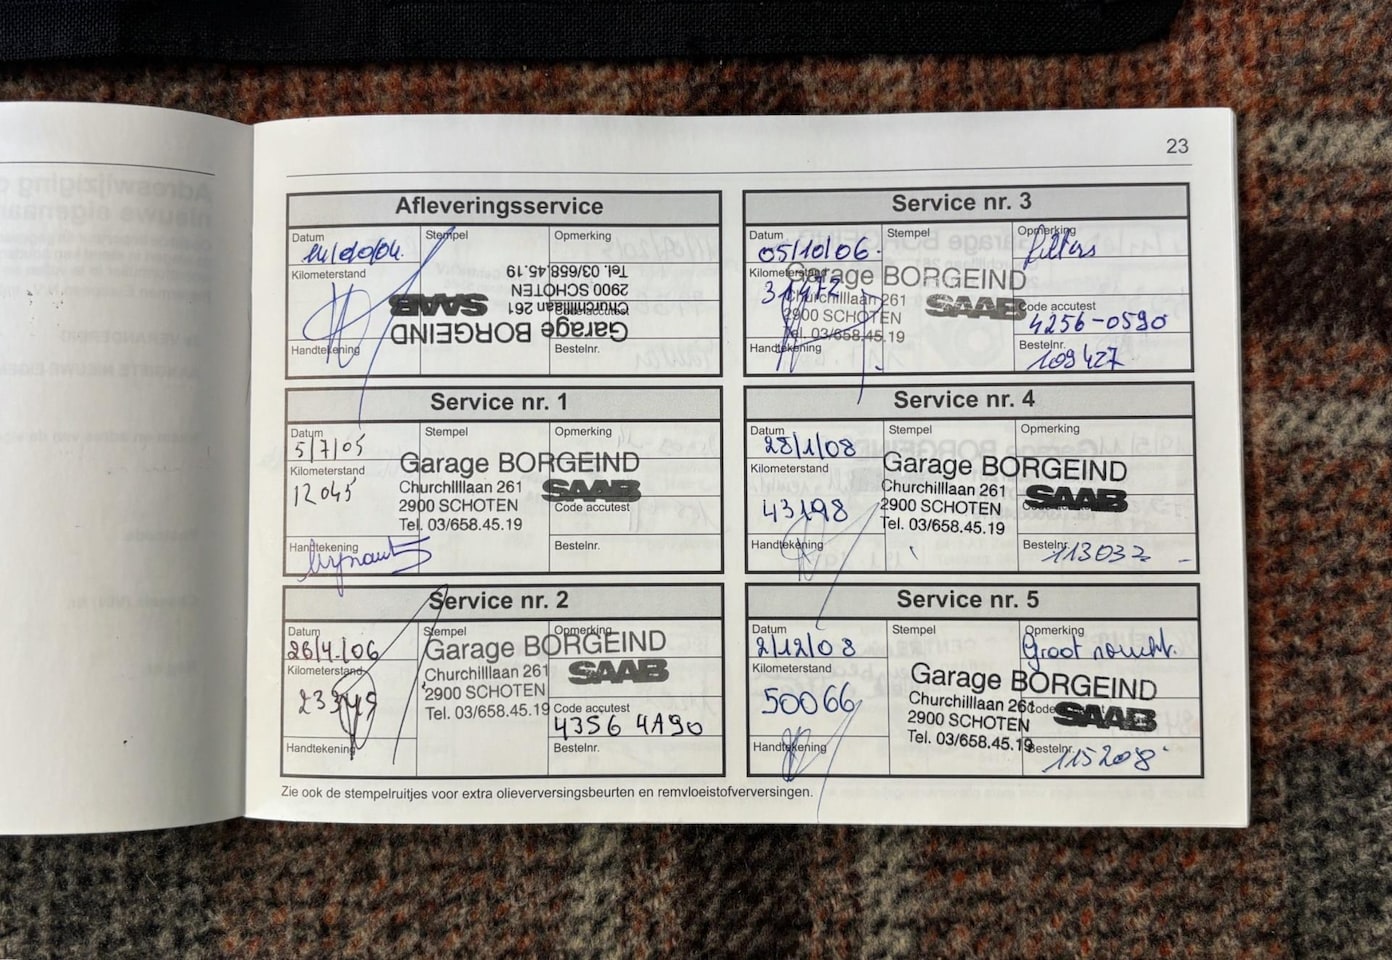 23
Afleveringsservice
Datum
Stempel
Opmerking
Kilometerstand
Handtekening
Garage BORGEIND
Churchilllaan 261
2900 SCHOTEN
Tel. 03/658.45.19
SAAB
Code accutest
Bestelnr.
Service nr. 1
Datum
5/7/05
Stempel
Opmerking
Kilometerstand
12045
Garage BORGEIND
Churchilllaan 261
2900 SCHOTEN
Tel. 03/658.45.19
SAAB
Code accutest
Handtekening
Bestelnr.
Service nr. 2
Datum
26/4/06
Stempel
Opmerking
Kilometerstand
Garage BORGEIND
Churchilllaan 261
2900 SCHOTEN
Tel. 03/658.45.19
SAAB
Code accutest
4356 4A90
Handtekening
Bestelnr.
Service nr. 3
Datum
05/10/06
Stempel
Opmerking
filters
Kilometerstand
31472
Garage BORGEIND
Churchilllaan 261
2900 SCHOTEN
Tel. 03/658.45.19
SAAB
Code accutest
4256-0590
Handtekening
Bestelnr.
109427
Service nr. 4
Datum
28/1/08
Stempel
Opmerking
Kilometerstand
43198
Garage BORGEIND
Churchilllaan 261
2900 SCHOTEN
Tel. 03/658.45.19
SAAB
Handtekening
Bestelnr.
113032
Service nr. 5
Datum
2/12/08
Stempel
Opmerking
Groot
Kilometerstand
50066
Garage BORGEIND
Churchilllaan 261
2900 SCHOTEN
Tel. 03/658.45.19
SAAB
Handtekening
Bestelnr.
115208
Zie ook de stempelruitjes voor extra olieverversingsbeurten en remvloeistofverversingen.